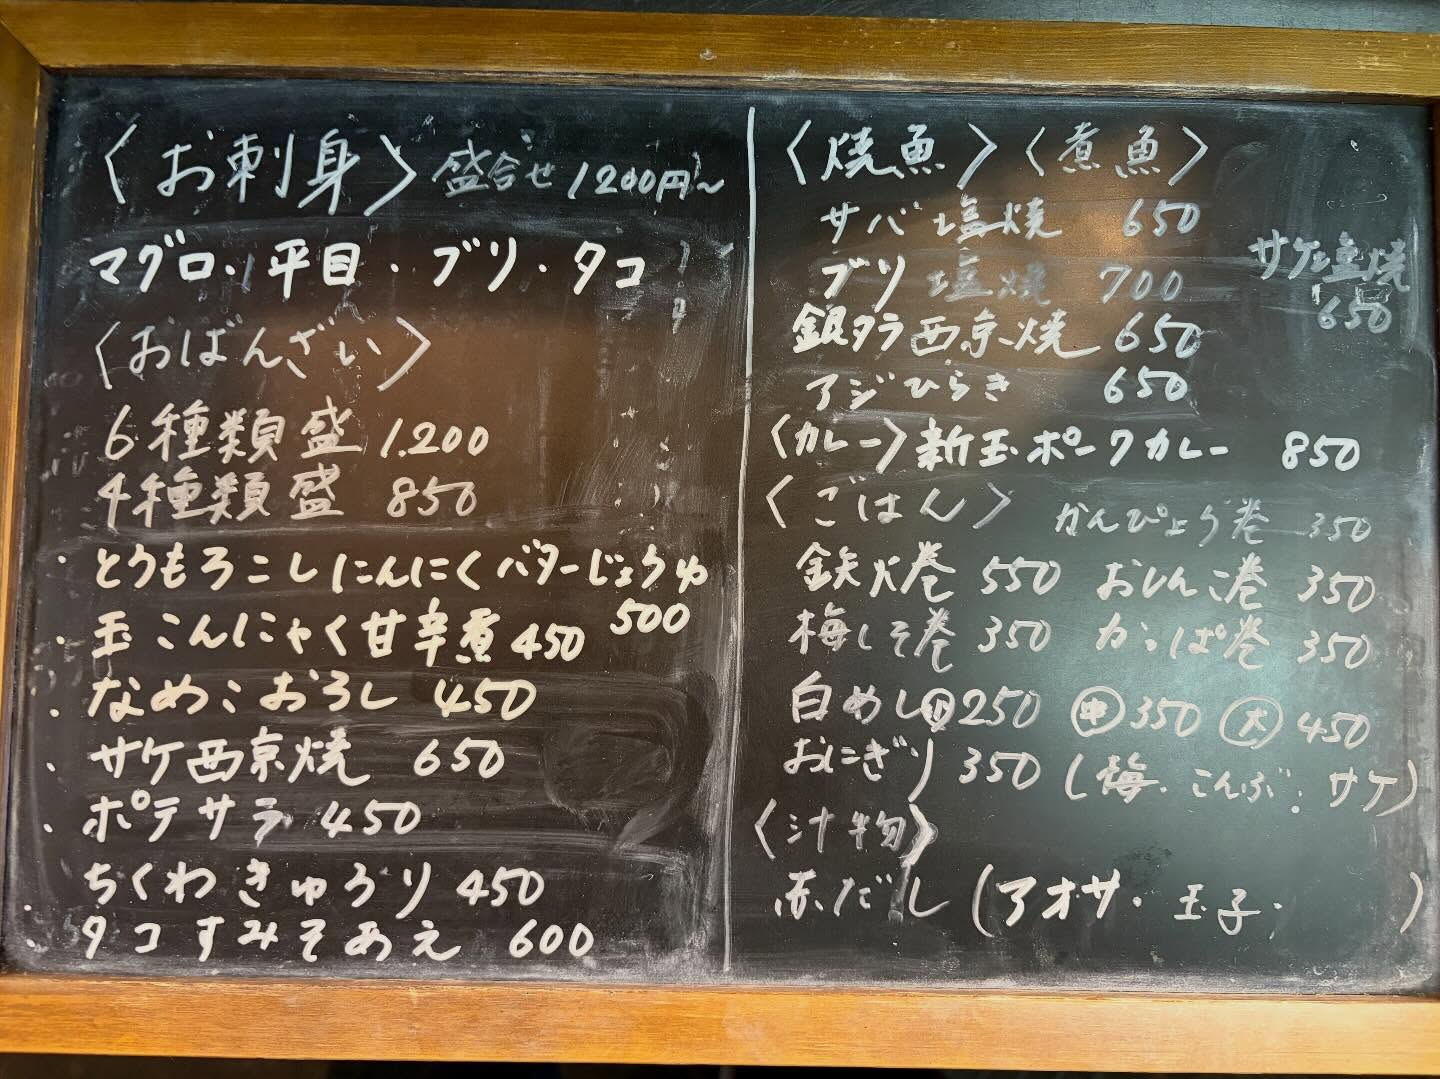 〈お刺身〉盛合せ 1200円~
マグロ・平目・ブリ・タコ
〈おばんざい〉
6種類盛 1.200
4種類盛 850
・とうもろこしにんにくバターじょうゆ
500
・玉こんにゃく甘辛煮 450
・なめこおろし 450
・サケ西京焼 650
・ポテサラ 450
・ちくわきゅうり 450
・タコすみそあえ 600
〈焼魚〉〈煮魚〉
サバ塩焼 650
サケ塩焼
650
ブリ塩焼 700
銀タラ西京焼 650
アジひらき 650
〈カレー〉新玉ポークカレー 850
〈ごはん〉 かんぴょう巻 350
鉄火巻 550 おしんこ巻 350
梅しそ巻 350 かっぱ巻 350
白めし小250 中350 大450
おにぎり 350 (梅・こんぶ・サケ)
〈汁物〉
赤だし (アオサ・玉子・ )